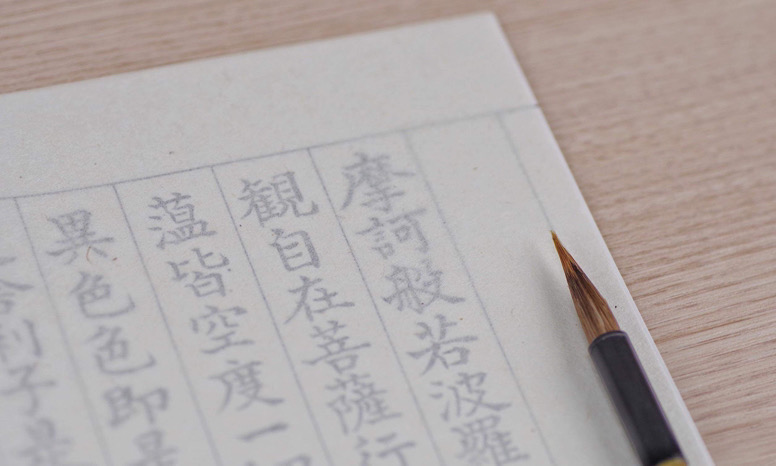 摩訶般若波羅
観自在菩薩行
蘊皆空度一
異色色即是
舎利子是